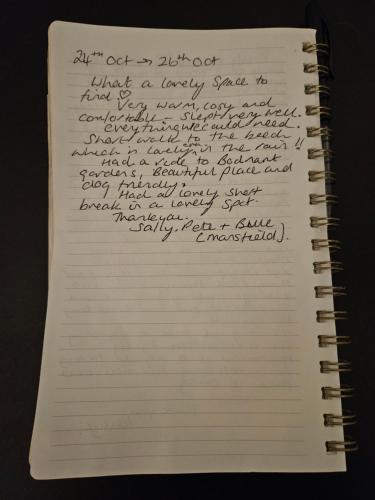 24th Oct → 26th Oct
What a lovely space to
find ♡
Very warm, cosy and
comfortable - slept very well.
everything we could need.
Short walk to the beach
which is lovely even in the rain !!
Had a ride to Bodnant
gardens, Beautiful place and
dog friendly.
Had a lovely short
break in a lovely spot.
Thankyou.
Sally, Pete +
(Mansfield).